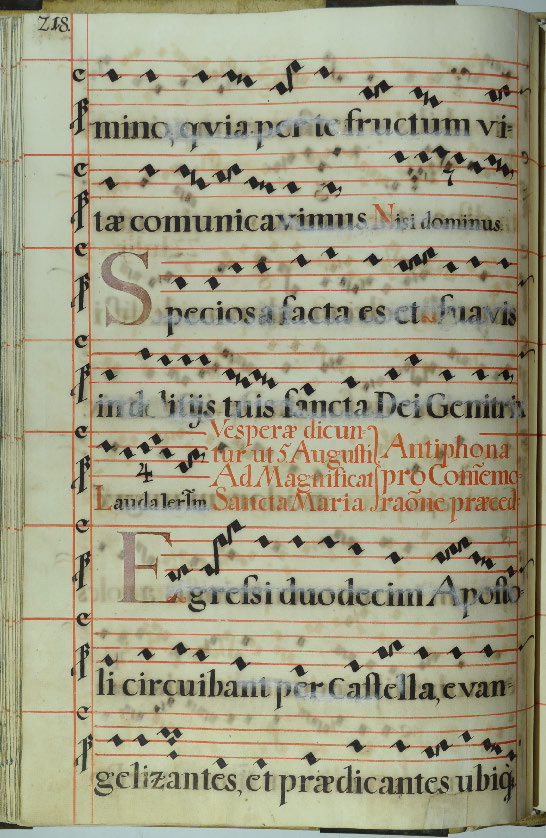 218.
mino, qvia per te fructum vi-
tæ comunicavimus. Nisi dominus.
7
Speciosa facta es et suavis
in delitijs tuis sancta Dei Genitrix
Vesperæ dicun-
tur ut 5 Augusti
Ad Magnificat
Sancta Maria
Antiphona
pro Com̃emo-
raõne præced:
4
Lauda Ierl̃m
Egressi duodecim Aposto
li circuibant per castella, evan-
gelizantes, et prædicantes ubiq;